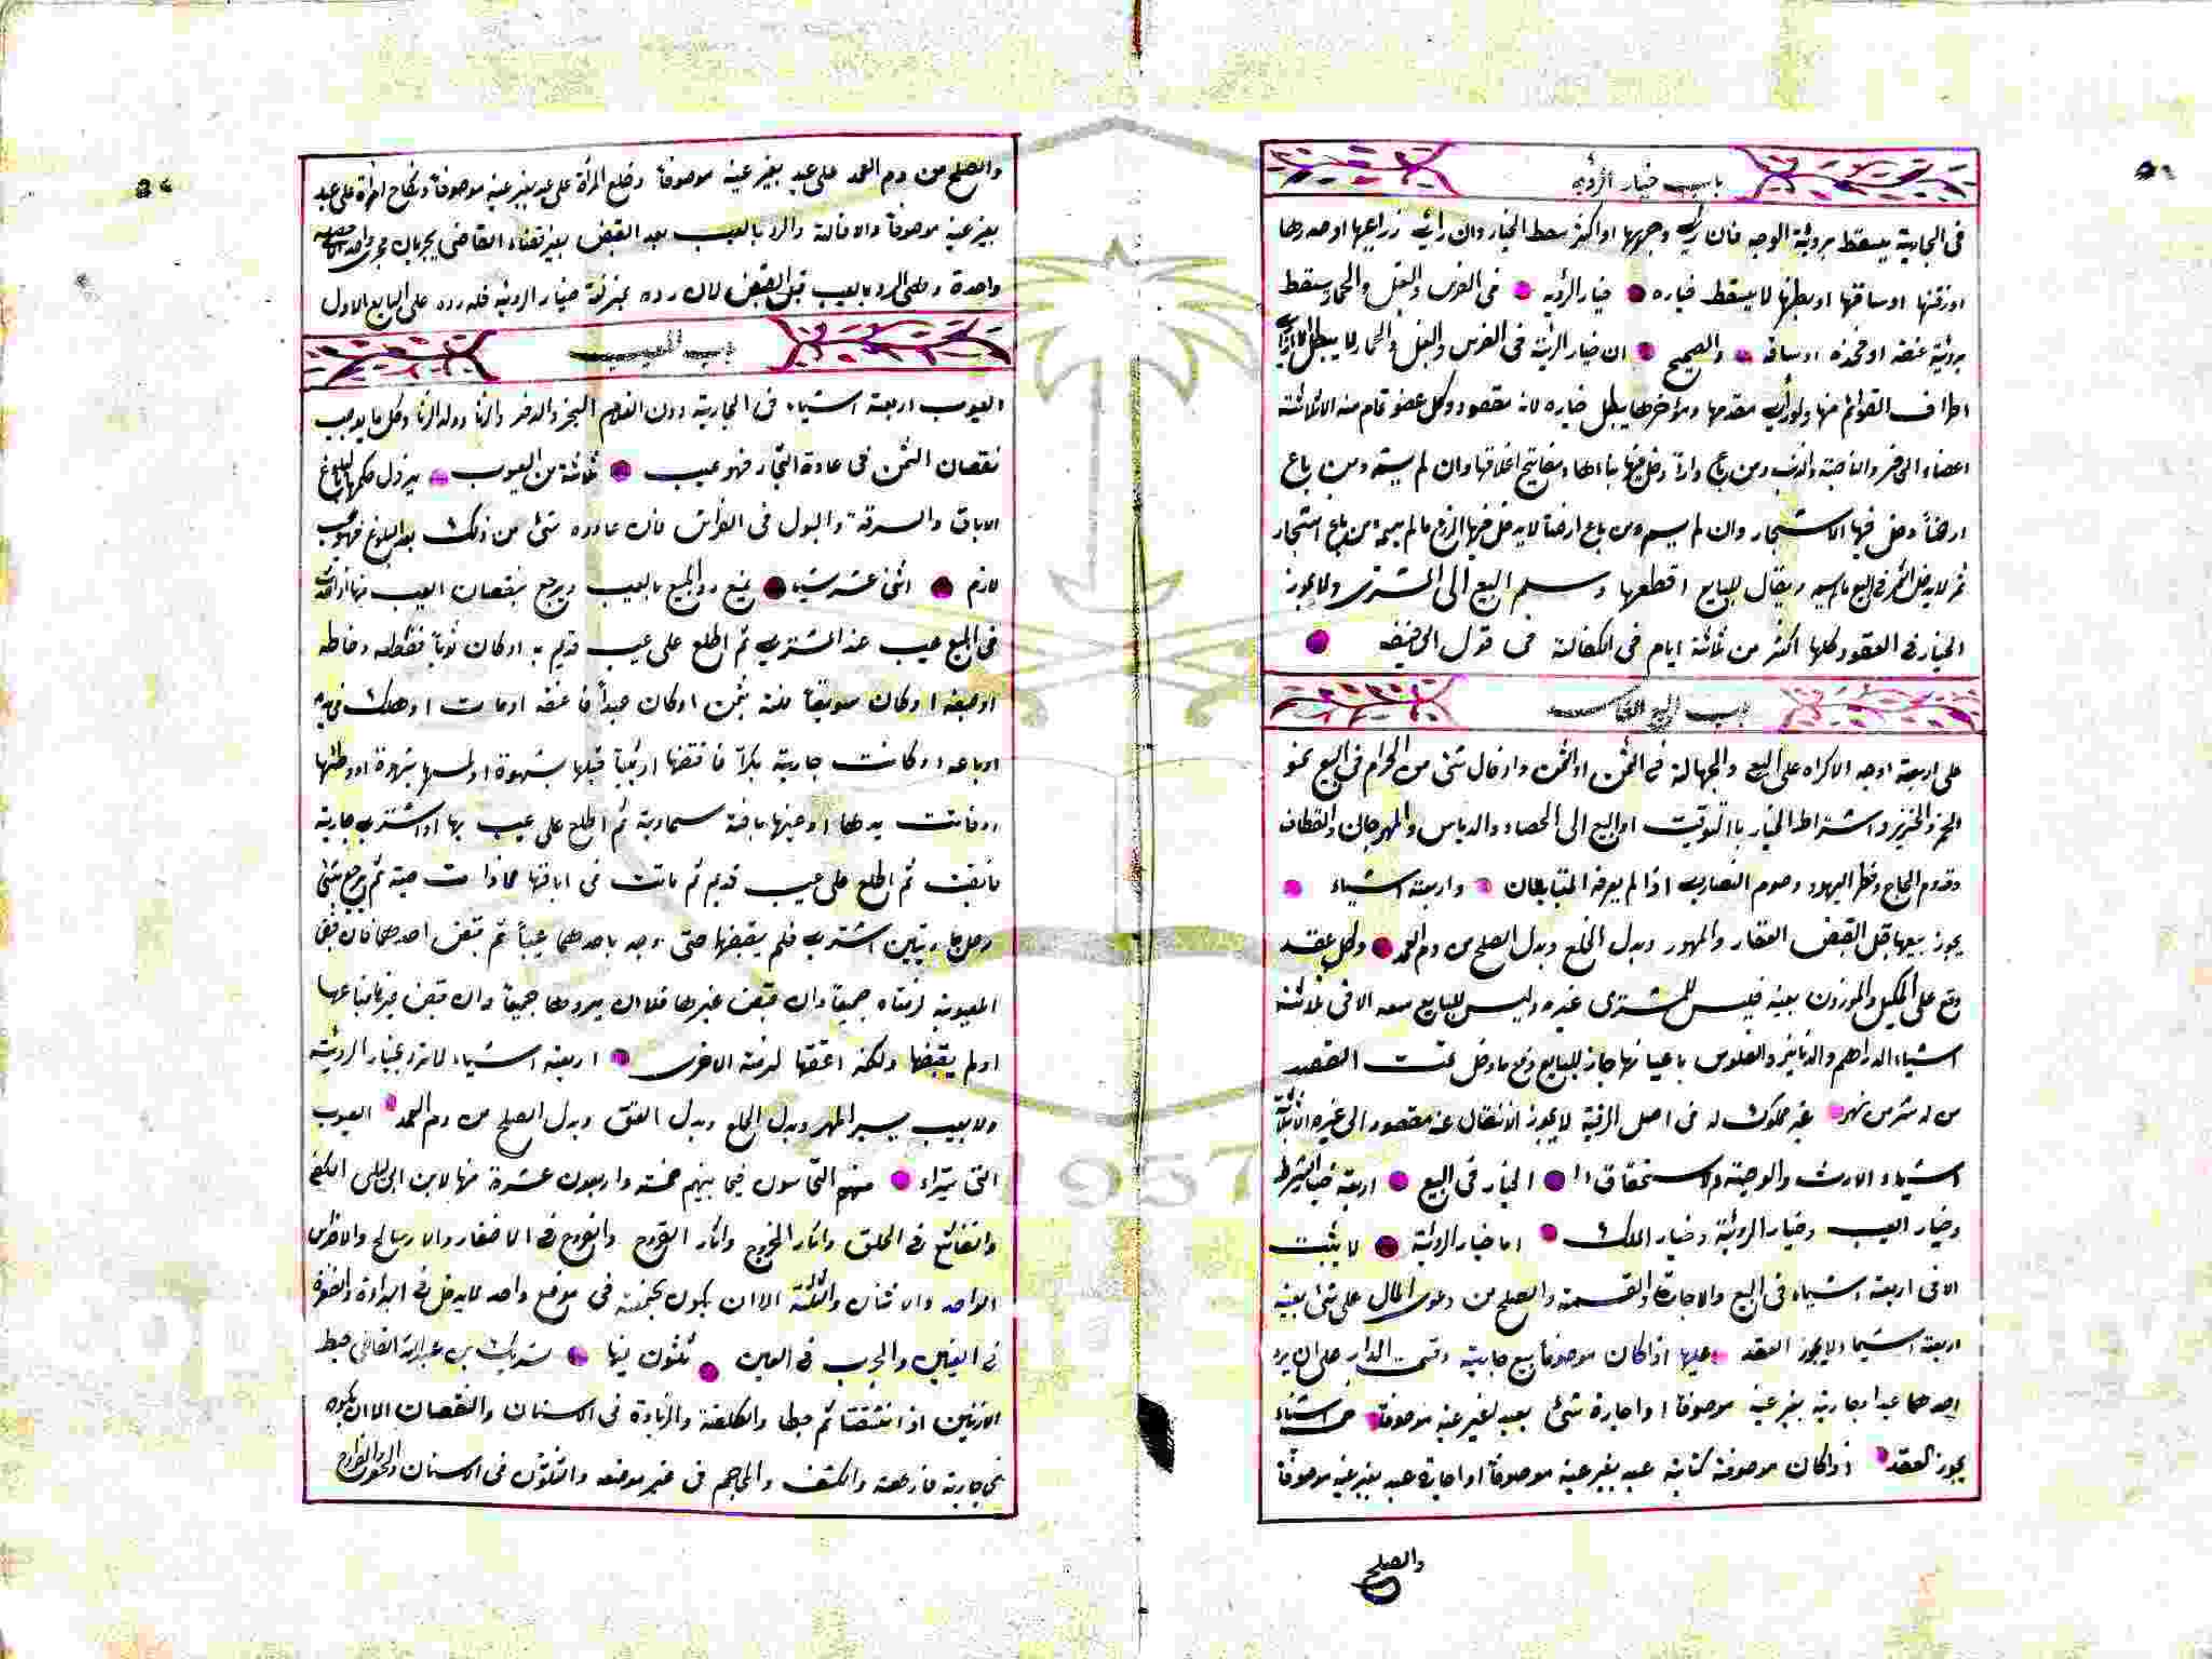 باب خيار الرؤية
فى الجارية يسقط برؤية الوجه فان رأى وجهها او اكثر سقط الخيار وان رأى ذراعيها او صدرها
او ساقها او بطنها لا يسقط خياره خيار الرؤية فى الفرس والبغل والحمار يسقط
برؤية عنقه او فخذه او ساقه والصحيح ان خيار الرؤية فى الفرس والبغل والحمار لا يبطل
اطراف القوائم منها ولو رأى مقدمها ومؤخرها يبطل خياره لانه مقصود وكل عضو تام منه الا ثلاثة
اعضاء الحافر والناصية والذنب ومن باع دارا دخل فيها بناءها ومفاتيح اغلاقها وان لم يسمه ومن باع
ارضاً دخل فيها الاشجار وان لم يسمه ومن باع ارضا لا يدخل فيها الزرع ما لم يسمه ومن باع اشجار
ثمر لا يدخل الثمر فى البيع ما لم يسمه ويقال للبايع اقطعها وسلم البيع الى المشترى ولا يجوز
الخيار فى العقود كلها اكثر من ثلاثة ايام فى الكفالة فى قول ابى حنيفه
باب البيع الفاسد
على اربعة اوجه الاكراه على البيع والجهالة فى الثمن او المثمن وادخال شئ من الحرام فى البيع نحو
الخمر والخنزير واشتراط الخيار بلا التوقيت او البيع الى الحصاد والدياس والمهرجان والقطاف
وقدوم الحاج وفطر اليهود وصوم النصارى اذا لم يعرفه المتبايعان واربعة اشياء
يجوز بيعها قبل القبض العقار والمهور وبدل الخلع وبدل الصلح من دم العمد وكل عقد
وقع على المكيل والموزون بعينه فليس للمشترى غيره وليس للبايع منعه الا فى ثلاثة
اشياء الدراهم والدنانير والفلوس باعيانها جاز للبايع دفع ما دخل تحت العقد
من له شرب من نهر غير مملوك له فى اصل الرقبة لا يجوز الانتقال عنه مقصود الى غيره الا ثلاثة
اشياء الارث والوصية والاستحقاق الخيار فى البيع اربعة خيار الشرط
وخيار العيب وخيار الرؤية وخيار الملك اما خيار الرؤية لا يثبت
الا فى اربعة اشياء فى البيع والاجارة والقسمة والصلح من دعوى المال على شئ بعينه
اربعة اشياء لا يجوز العقد عليها اذا كان موصوفا بيع جارية وقسمة الدار على ان يرد
احدهما عبدا وجارية بغير عينه موصوفا او اجارة شئ بعبد بغير عينه موصوفا خمس اشياء
يجوز العقد اذا كان موصوفة كتابة عبد بغير عينه موصوفا او اجارة عبد بغير عينه موصوفا
والصلح
والصلح من دم العمد على عبد بغير عينه موصوفا وخلع المرأة على عبد بغير عينه موصوفا ونكاح امرأة على عبد
بغير عينه موصوفا والاقالة والرد بالعيب بعد القبض بغير قضاء القاضى يجريان مجرى
واحدة وفى الرد بالعيب قبل القبض لان رده بمنزلة خيار الرؤية فله رده على البايع الاول
باب العيب
العيوب اربعة اشياء فى الجارية دون الغلام البخر والدفر والزنا وولد الزنا وكل ما يوجب
نقصان الثمن فى عادة التجار فهو عيب ثلاثة من العيوب يزول حكمها بالبلوغ
الاباق والسرقة والبول فى الفراش فان عاوده شئ من ذلك بعد البلوغ فهو عيب
لازم اثنى عشر شيا يمنع رد المبيع بالعيب ويرجع بنقصان العيب منها اذا حدث
فى المبيع عيب عند المشترى ثم اطلع على عيب قديم به او كان ثوبا فقطعه وخاطه
او صبغه او كان سويقا فلته بسمن او كان عبدا فاعتقه او مات او هلك فى يده
او باعه او كانت جارية بكرا فافتضها او ثيبا قبلها بشهوة او لمسها بشهوة او وطئها
او فاتت يدها او عينها بافة سماوية ثم اطلع على عيب بها او اشترى جارية
فابقت ثم اطلع على عيب قديم ثم ماتت فى اباقها ثم يرجع بشئ
رجل جاريتين اشترى فلم يقبضها حتى وجد باحدهما عيبا ثم قبض احدهما فان قبض
المعيوبة لزمتاه جميعا وان قبض غيرها فله ان يردها جميعا وان قبض غيرها فباعها
او لم يقبضها ولكنه اعتقها لزمته الاخرى اربعة اشياء لا ترد بخيار الرؤية
ولا بعيب يسير المهر وبدل الخلع وبدل العتق وبدل الصلح من دم العمد العيوب
التى يتبراء منهم النخاسون فيما بينهم خمسة واربعون عشرة منها لابن ابى ليلى الكى
فى الحلق واثار الجروح واثار القروح والقروح فى الاظفار والاضراس
الواحد والاثنان والثلثة الا ان يكون مجتمعة فى موضع واحد لا يدخل فى البراءة
فى العينين والجرب فى العين ثلثون شريك بن عبدالله القاضى
الاذنين اذا انشقتا ثم خيطا والكلفة والزيادة فى الاسنان والنقصان الا ان يكون
فى جارية فارهة والكشف والمحاجم فى غير موضعه فى الاسنان